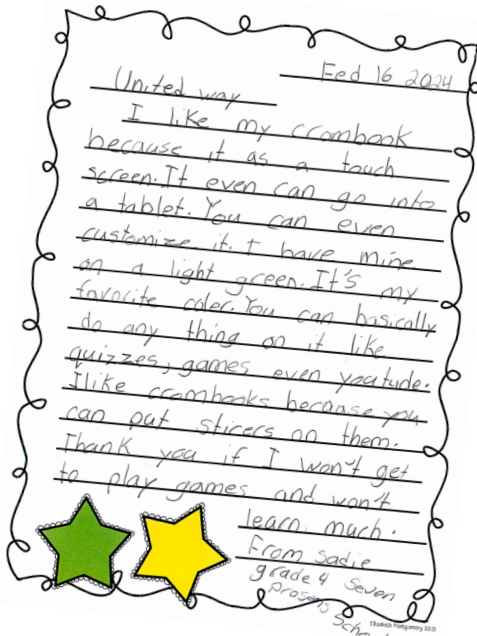 Fed 16 2024
United way
I like my crombook
because it as a touch
screen. It even can go into
a tablet. You can even
customize it. I have mine
on a light green. It's my
favorite coler. You can basically
do any thing on it like
quizzes, games even youtude.
I like crombooks because you
can put sticers on them.
Thank you if I won't get
to play games and won't
learn much.
From Sadie
grade 4 Seven
Elizabeth Montgomery 2013